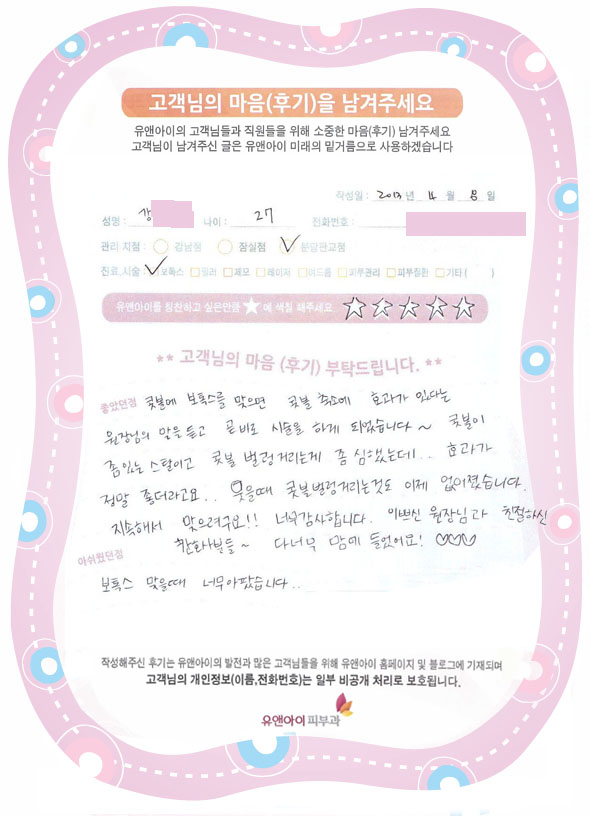 고객님의 마음(후기)을 남겨주세요
유앤아이의 고객님들과 직원들을 위해 소중한 마음(후기) 남겨주세요
고객님이 남겨주신 글은 유앤아이 미래의 밑거름으로 사용하겠습니다
작성일 : 2013 년 4 월 8 일
성명 : 강 나이 : 27 전화번호 :
관리 지점 : 강남점 잠실점 분당판교점
진료,시술 : 보톡스 필러 제모 레이저 여드름 피부관리 피부질환 기타 ( )
유앤아이를 칭찬하고 싶은만큼 ★에 색칠 해주세요 ☆☆☆☆☆
** 고객님의 마음 (후기) 부탁드립니다. **
좋았던점 콧볼에 보톡스를 맞으면 콧볼 축소에 효과가 있다는
원장님의 말을 듣고 곧바로 시술을 하게 되었습니다~ 콧볼이
좀있는 스탈이고 콧볼 벌렁거리는게 좀 심했는데.. 효과가
정말 좋더라고요.. 웃을때 콧볼벌렁거리는것도 이제 없어졌습니다.
지속해서 맞으려구요!! 너무감사합니다. 이쁘신 원장님과 친절하신
간호사분들~ 다너무 맘에 들었어요! ♡♡♡
아쉬웠던점
보톡스 맞을때 너무아팠습니다..
작성해주신 후기는 유앤아이의 발전과 많은 고객님들을 위해 유앤아이 홈페이지 및 블로그에 기재되며
고객님의 개인정보(이름,전화번호)는 일부 비공개 처리로 보호됩니다.
유앤아이피부과